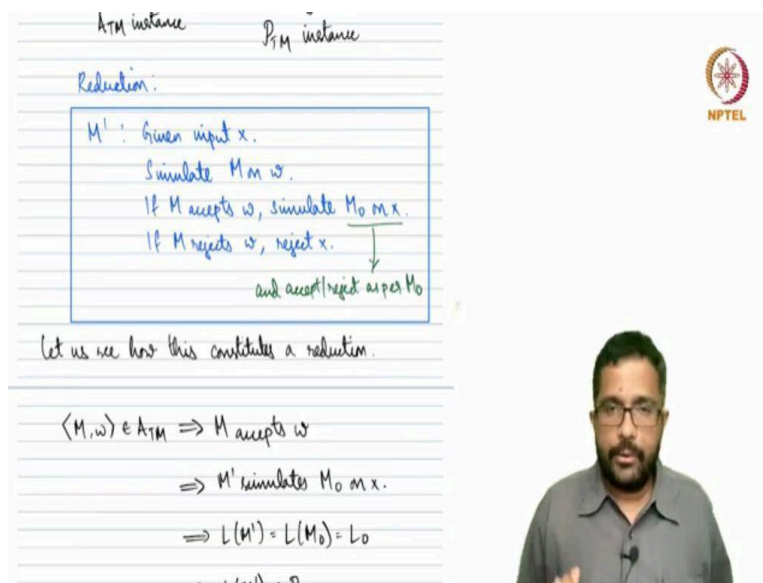 A_TM instance
P_TM instance
Reduction:
M' : Given input x.
Simulate M on w.
If M accepts w, simulate M₀ on x.
If M rejects w, reject x.
and accept/reject as per M₀
Let us see how this constitutes a reduction.
⟨M,w⟩ ∈ A_TM ⇒ M accepts w
⇒ M' simulates M₀ on x.
⇒ L(M') = L(M₀) = L₀
NPTEL